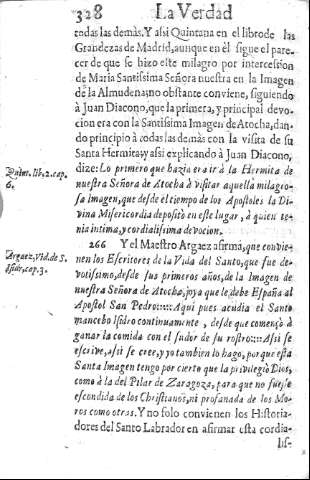 328 La Verdad
todas las demàs. Y assi Quintana en el librode las
Grandezas de Madrid, aunque en èl sigue el pare-
cer de que se hizo este milagro por intercession
de Maria Santissima Señora nuestra en la Imagen
de la Almudena; no obstante conviene, siguiendo
à Juan Diacono, que la primera, y principal devo-
cion era con la Santissima Imagen de Atocha, dan-
do principio à todas las demàs con la visita de su
Santa Hermita, y assi explicando à Juan Diacono,
dize: Lo primero que hazia era ir à la Hermita de
Quint. lib. 2. cap.
6.
nuestra Señora de Atocha à visitar aquella milagro-
sa Imagen, que desde el tiempo de los Apostoles la Di-
vina Misericordia depositò en este lugar, à quien te-
nia intima, y cordialissima devocion.
266 Y el Maestro Argaez afirma, que convie-
Argaez, Vid. de S.
Isidr. cap. 3.
nen los Escritores de la Vida del Santo, que fue de-
votissimo, desde sus primeros años, de la Imagen de
nuestra Señora de Atocha, joya que le debe España al
Apostol San Pedro:::: Aqui pues acudia el Santo
mancebo Isidro continuamente, desde que començò à
ganar la comida con el sudor de su rostro:::: Assi se
escrive, assi se cree, y yo tambien lo hago, porque esta
Santa Imagen tengo por cierto que la privilegiò Dios,
como à la del Pilar de Zaragoza, para que no fuesse
escondida de los Christianos, ni profanada de los Mo-
ros como otras. Y no solo convienen los Historia-
dores del Santo Labrador en afirmar esta cordia-
lis-